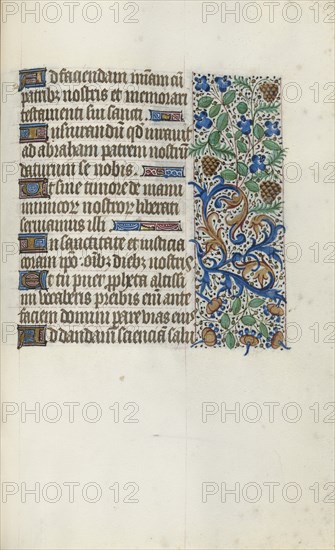 Ad faciendam mīam cū
patribȝ nostris et memorari
testamenti sui sancti.
Iusiurandū qd iuravit
ad abraham patrem nostrū
daturum se nobis.
Ut sine timore de manu
inimicor nostror liberati
serviamus illi.
In sanctitate et iusticia
coram ipō oībȝ diebȝ nostris.
Et tu puer ppheta altissi
mi vocaberis preibis eni ante
faciem domini parare vias eius
Ad dandam scienciam salu
PHOTO 12